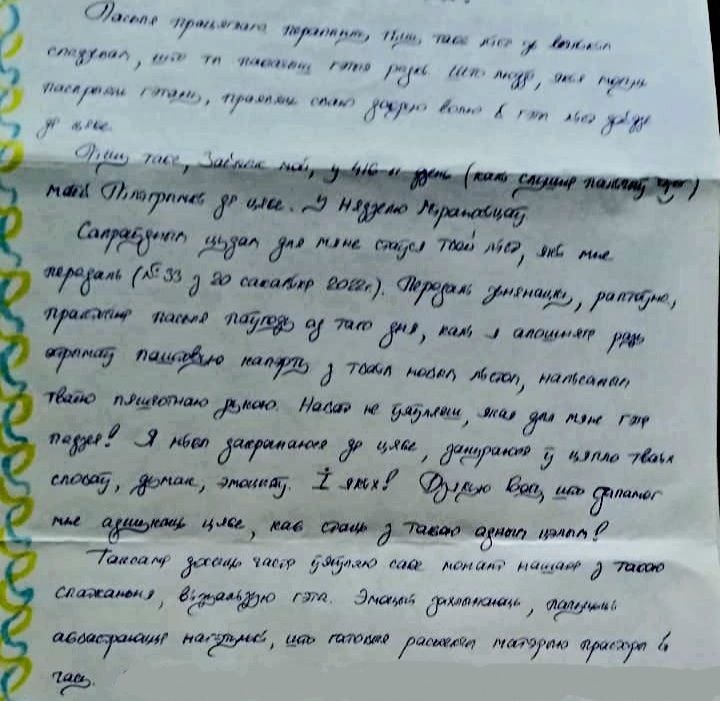 Пасьля працяглага перапынку, пішу табе ліст зь вялікім
спадзевам, што ты пабачыш гэтыя радкі. Што людзі, якія могуць
паспрыяць гэтаму, праявяць сваю добрую волю і гэты ліст дойдзе
да цябе.
Пішу табе, мой, у 416-ы дзень (каб спыніць
маёй да цябе. У нядзелю
Сапраўдным цудам для мяне стаўся твой ліст, які мне
перадалі (№33 з 20 сакавіка 2022г.). Перадалі зьнянацку, раптоўна,
практычна пасьля паўгоду ад таго дня, калі я апошні раз
атрымаў паштовую капэрту з тваім новым лістом, напісаным
тваёю пяшчотнаю рукою. Нават не ўяўляеш, якая для мяне гэта
падзея! Я нібы дакранаюся да цябе, занураюся ў цяпло тваіх
словаў, думак, эмоцыяў. І якіх! Дзякую Богу, што дапамог
мне адшукаць цябе, каб стаць з табою адным цэлым!
Таксама досыць часта ўяўляю сабе момант нашага з табою
спатканьня, візуалізую гэта. Эмоцыі захлынаюць, пачуцьці
абвастраюцца настулькі, што гатовыя рассекчы матэрыю прасторы й
часу.